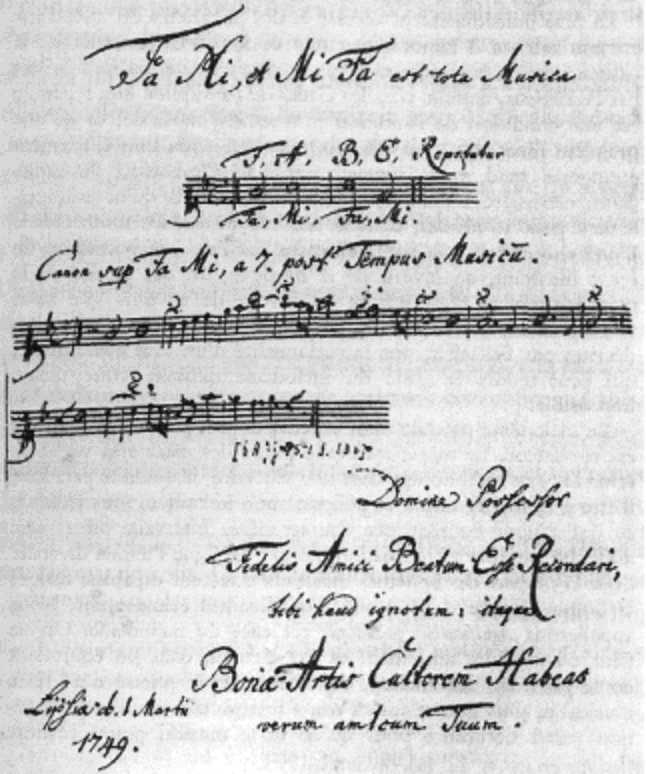 Fa Mi, et Mi Fa est tota Musica
F, A, B, E, Repetatur
Fa, Mi, Fa, Mi.
Canon sup Fa Mi, a 7. post Tempus Musicũ.
Domine Possessor
Fidelis Amici Beatum Esse Recordari
tibi haud ignotum: itaque
Bonæ Artis Cultorem Habeas
Lipsiæ d. 1 Martii
verum amicum Tuum.
1749.